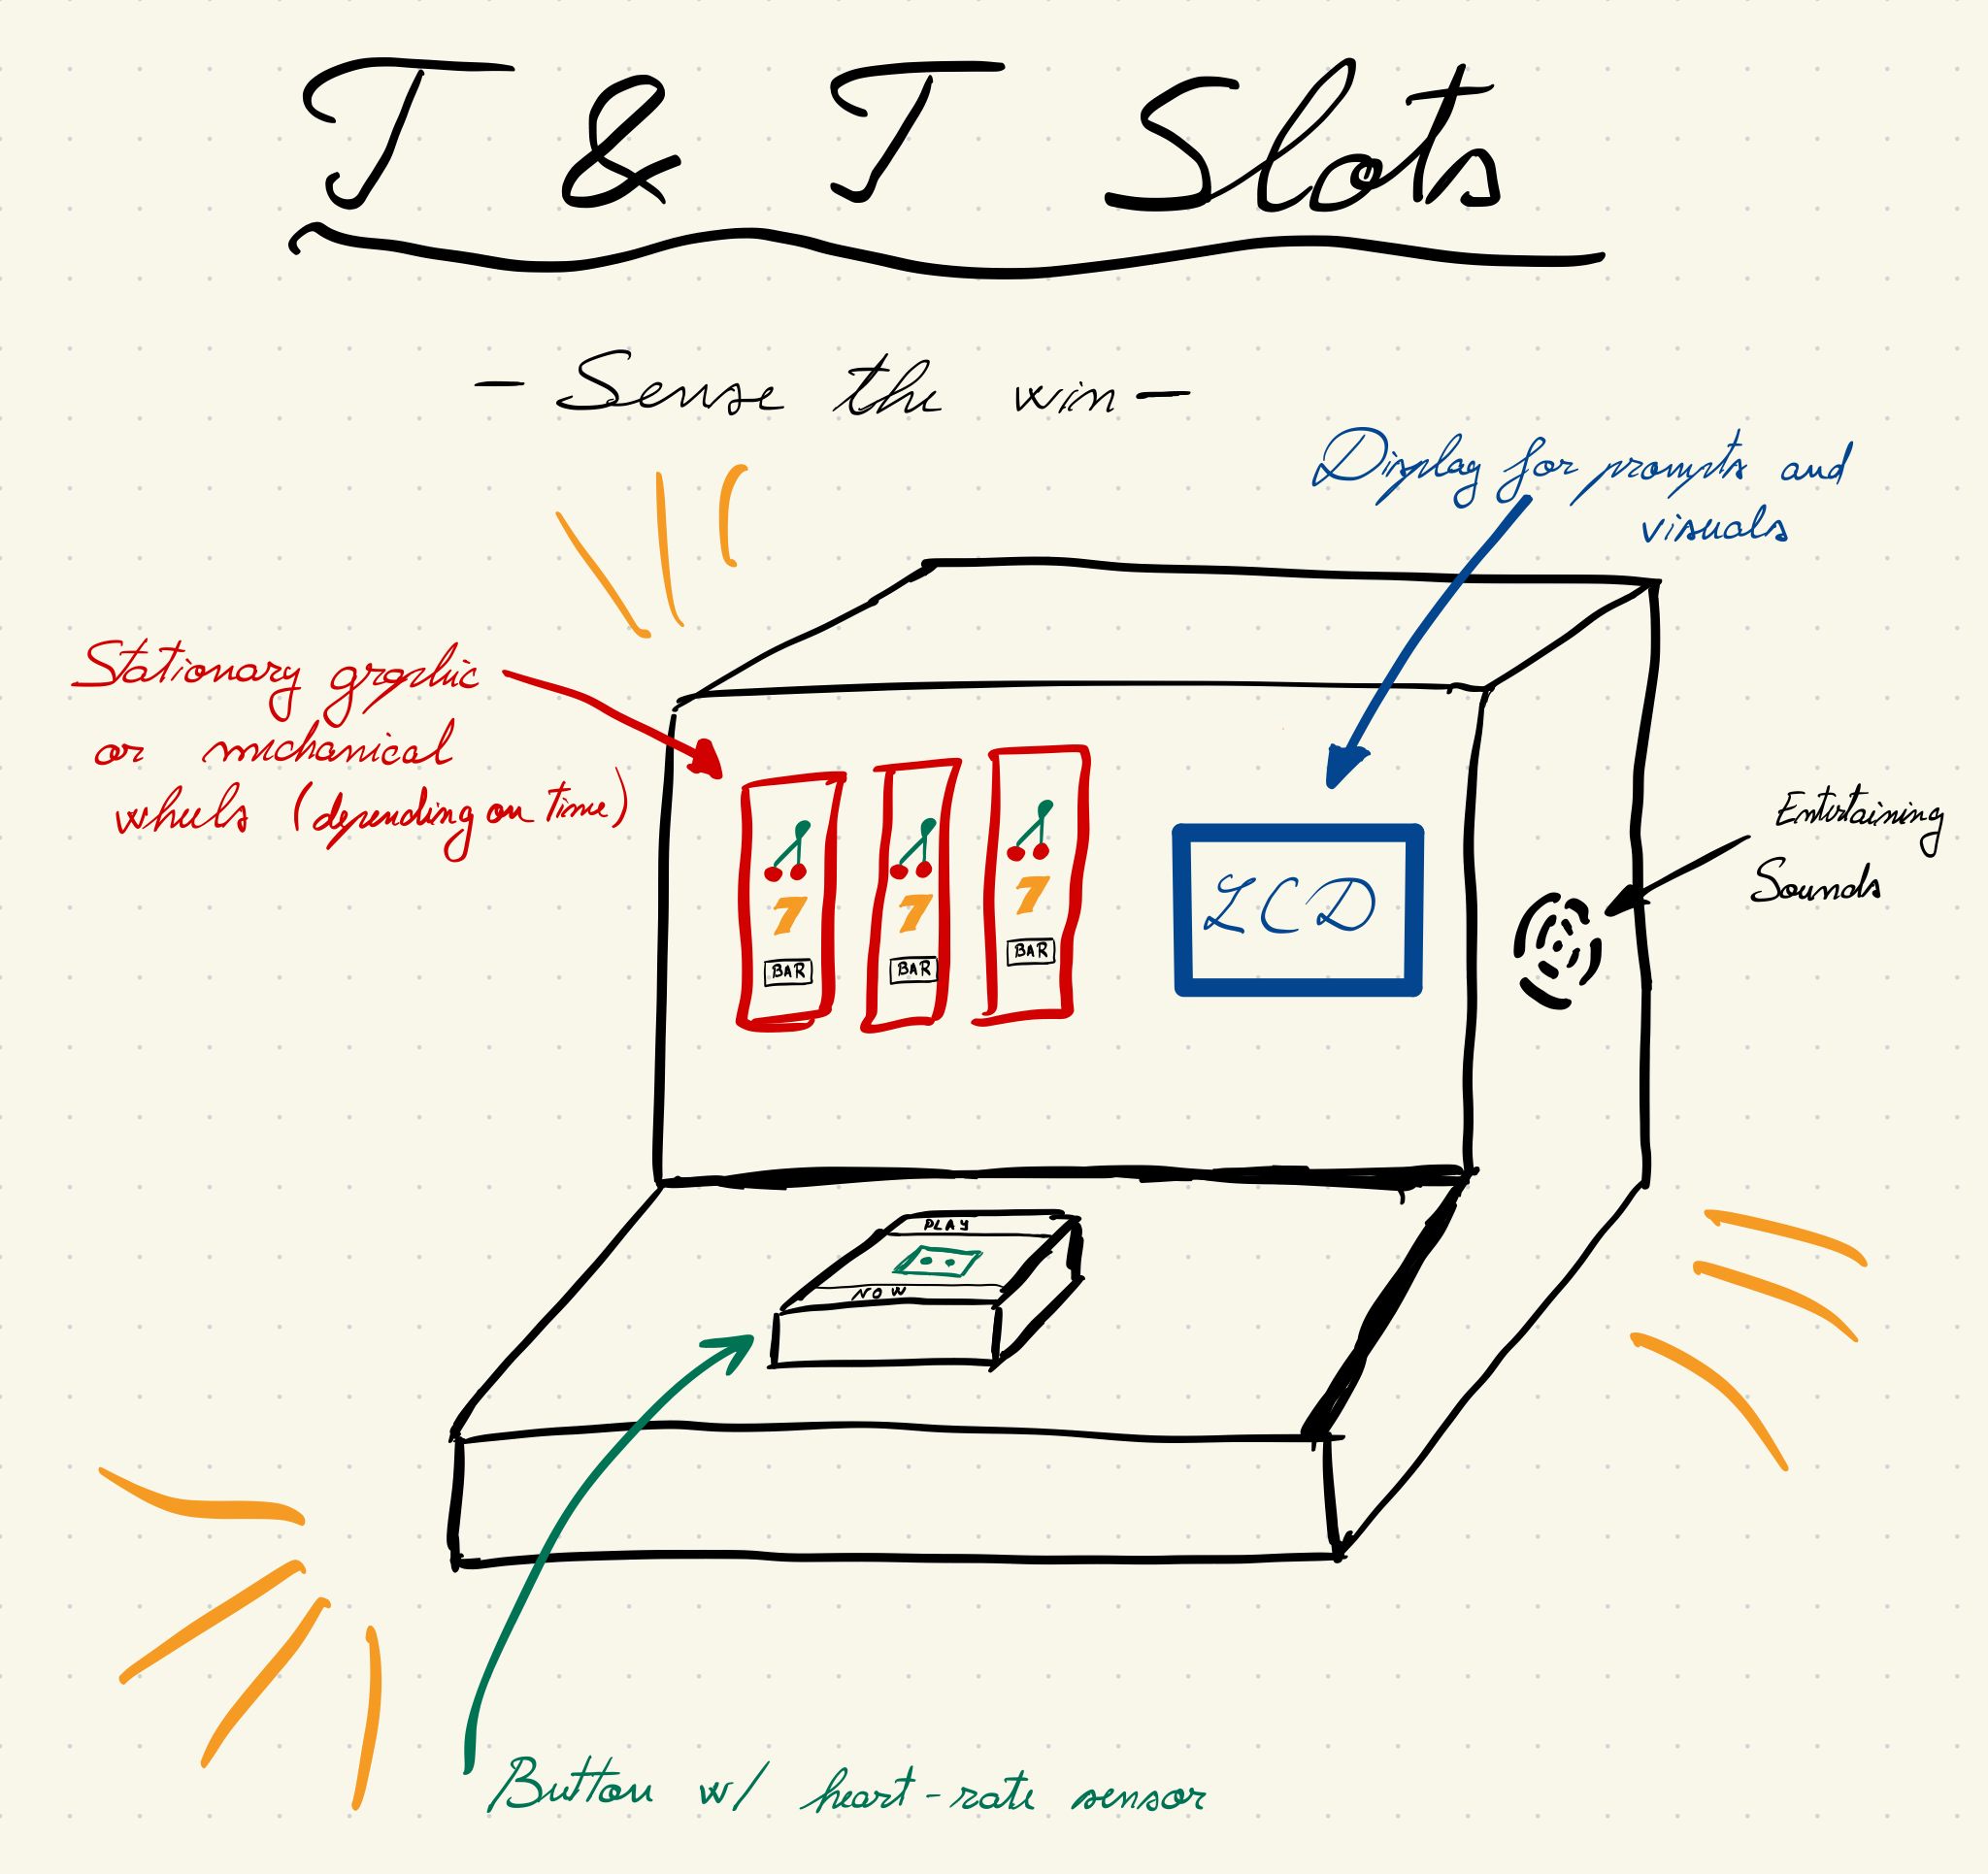 T & T Slots
- Sense the win -
Display for prompts and
visuals
Stationary graphic
or mechanical
wheels (depending on time)
Entertaining
Sounds
7
7
7
BAR
BAR
BAR
LCD
PLAY
NOW
Button w/ heart-rate sensor